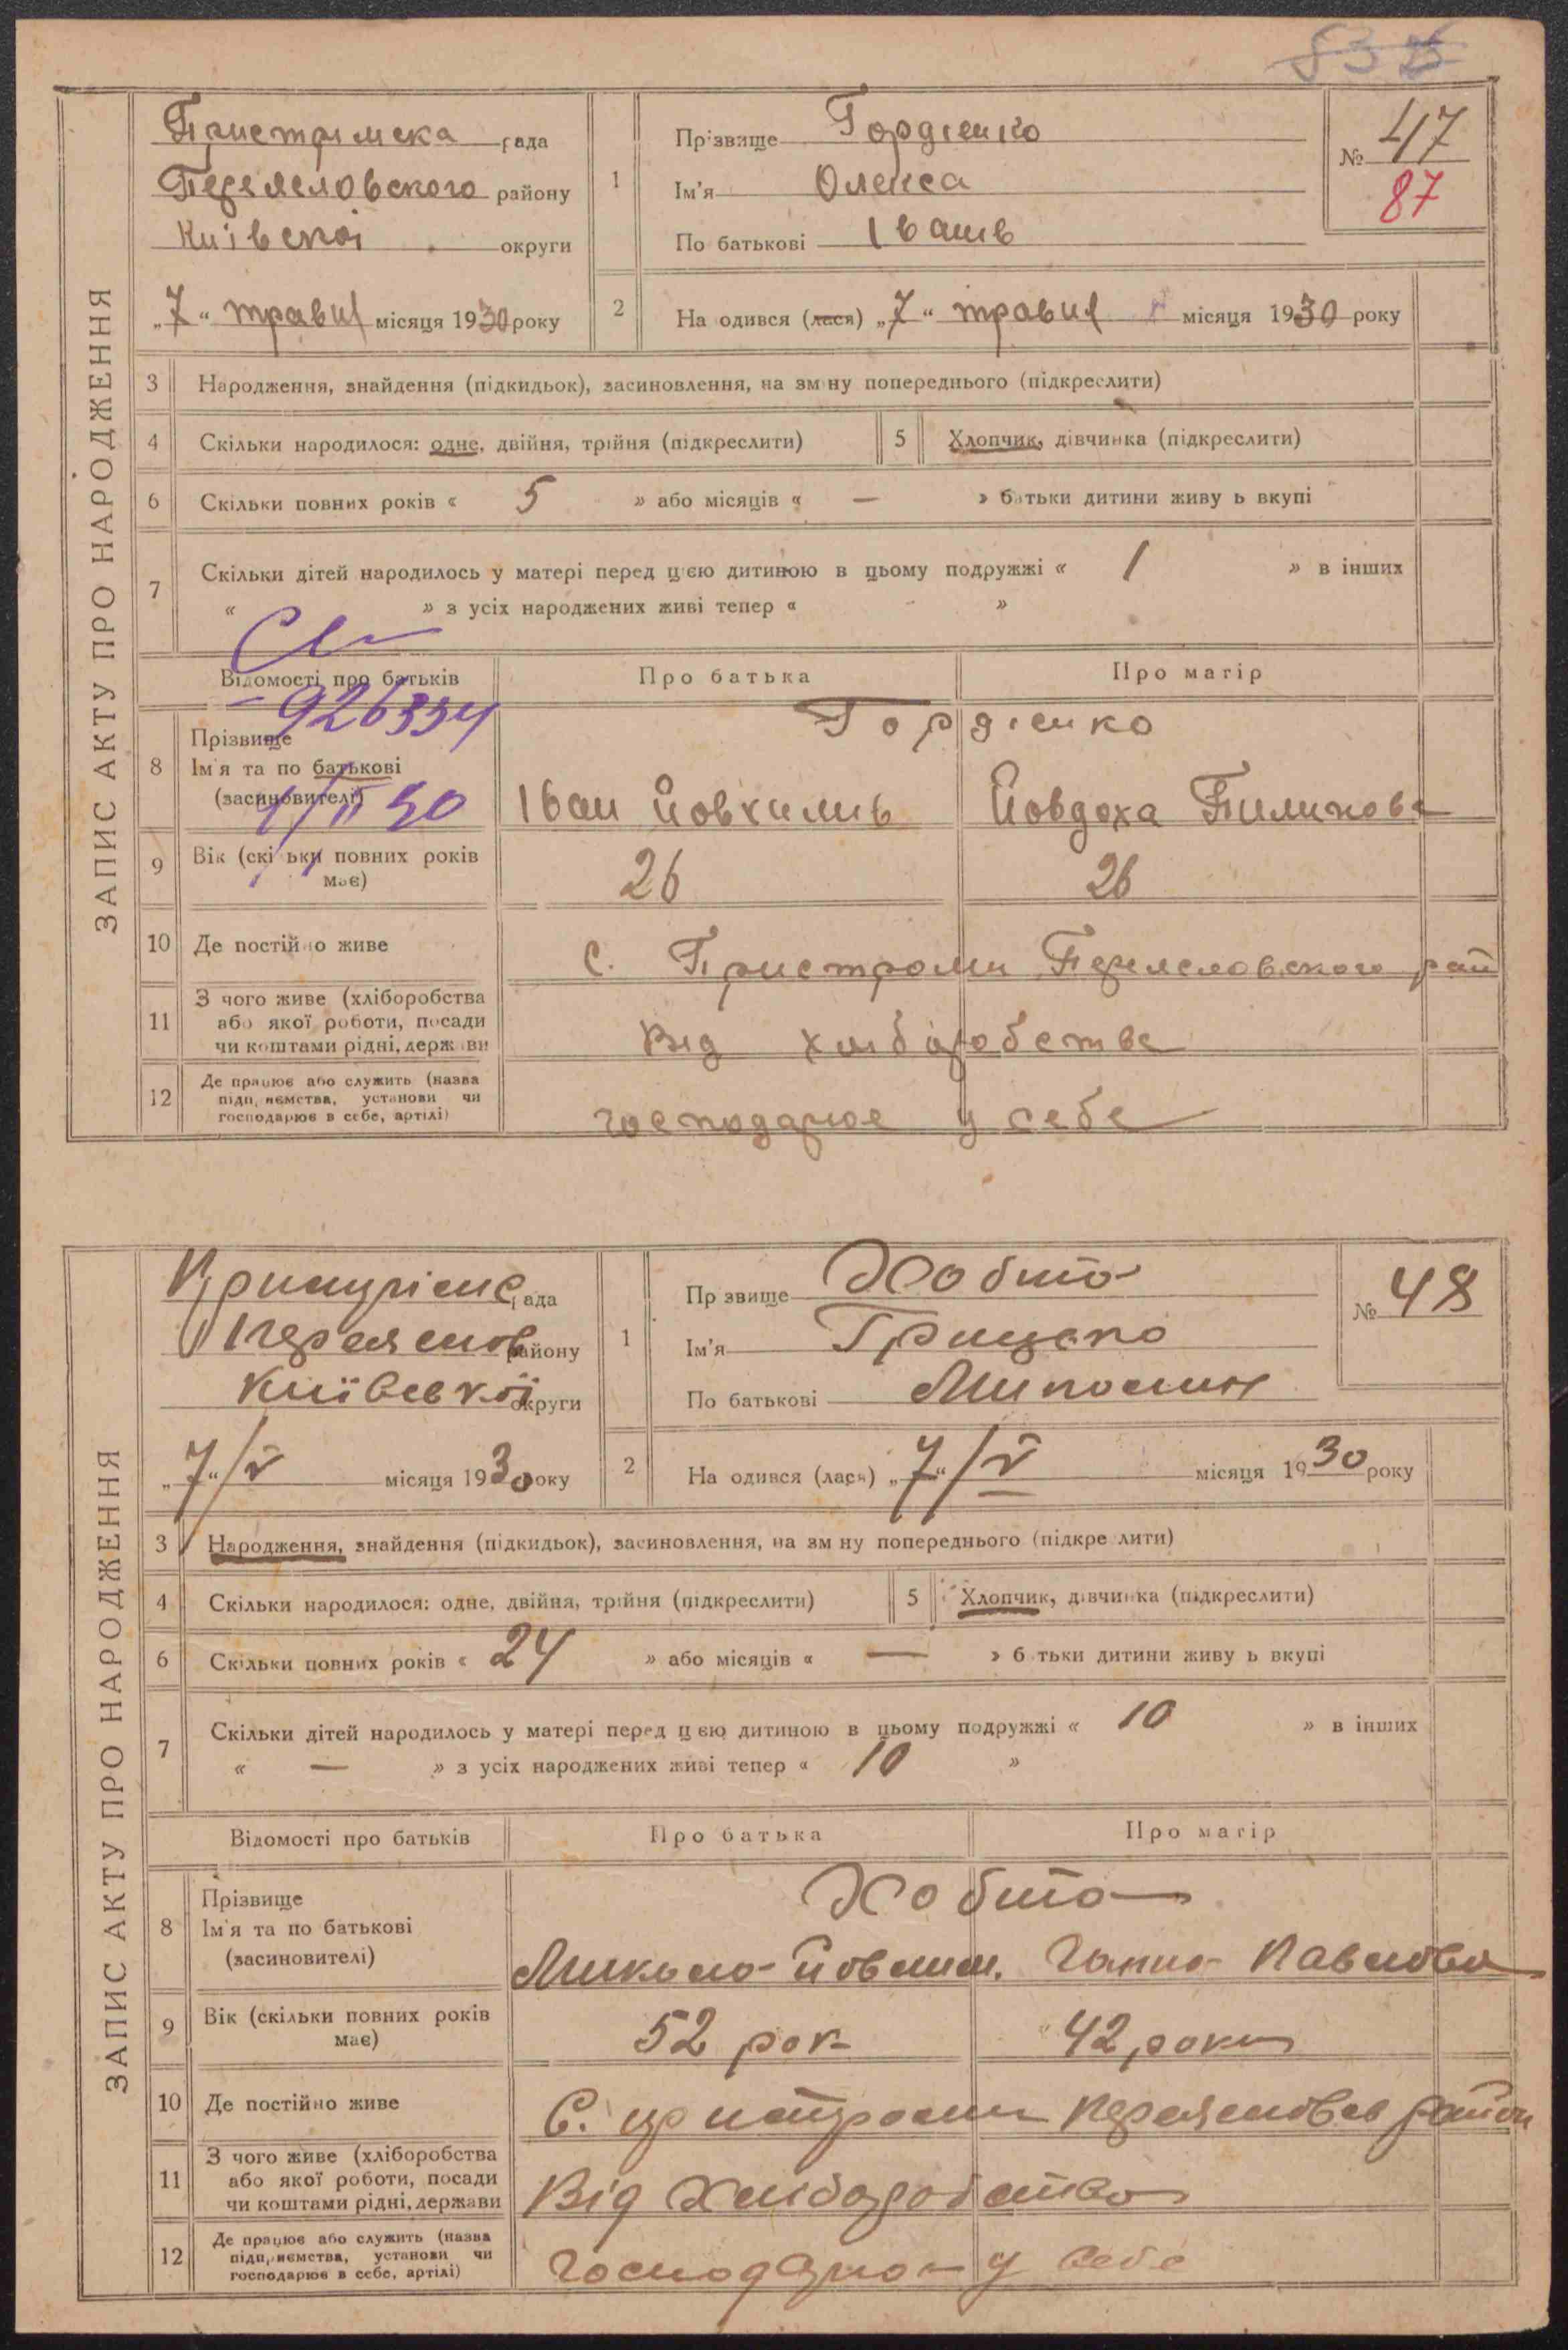 ЗАПИС АКТУ ПРО НАРОДЖЕННЯ
Пристрімска рада
Переяславского району
Київскої округи
„7“ травня місяця 1930 року
1 Прізвище Гордієнко
Ім'я Олекса
По батькові Іванів
№ 47
87
2 На одився (лася) „7“ травня місяця 1930 року
3 Народження, знайдення (підкидьок), засиновлення, на зміну попереднього (підкреслити)
4 Скільки народилося: одне, двійня, трійня (підкреслити)
5 Хлопчик, дівчинка (підкреслити)
6 Скільки повних років « 5 » або місяців « — » батьки дитини живу ь вкупі
7 Скільки дітей народилось у матері перед цією дитиною в цьому подружжі « 1 » в інших
« » з усіх народжених живі тепер « - »
Відомості про батьків Про батька Про матір
926334
8 Прізвище Гордієнко
Ім'я та по батькові
(засиновителі) Іван Йовхимів Йовдоха Пилипова
9 Вік (скільки повних років
має) 26 26
10 Де постійно живе с. Пристроми Переяславского рай
11 З чого живе (хліборобства
або якої роботи, посади
чи коштами рідні, держави Від хліборобства
12 Де працює або служить (назва
підприємства, установи чи
господарює в себе, артілі) господарює у себе
ЗАПИС АКТУ ПРО НАРОДЖЕННЯ
рада
району
Київської округи
„7“/V місяця 1930 року
1 Прізвище Хобта
Ім'я Грицько
По батькові
№ 48
2 На одився (лася) „7“/V місяця 1930 року
3 Народження, знайдення (підкидьок), засиновлення, на зм ну попереднього (підкре лити)
4 Скільки народилося: одне, двійня, трійня (підкреслити)
5 Хлопчик, дівчинка (підкреслити)
6 Скільки повних років « 24 » або місяців « — » б тьки дитини живу ь вкупі
7 Скільки дітей народилось у матері перед цією дитиною в цьому подружжі « 10 » в інших
« — » з усіх народжених живі тепер « 10 »
Відомості про батьків Про батька Про матір
8 Прізвище Хобта
Ім'я та по батькові
(засиновителі) Микола Ганна Павлова
9 Вік (скільки повних років
має) 52 рок 42 роки
10 Де постійно живе С. пристроми район
11 З чого живе (хліборобства
або якої роботи, посади
чи коштами рідні, держави Від Хліборобства
12 Де працює або служить (назва
підприємства, установи чи
господарює в себе, артілі) у себе